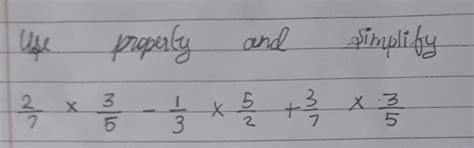 Use property and simplify
2/7 × 3/5 - 1/3 × 5/2 + 3/7 × 3/5